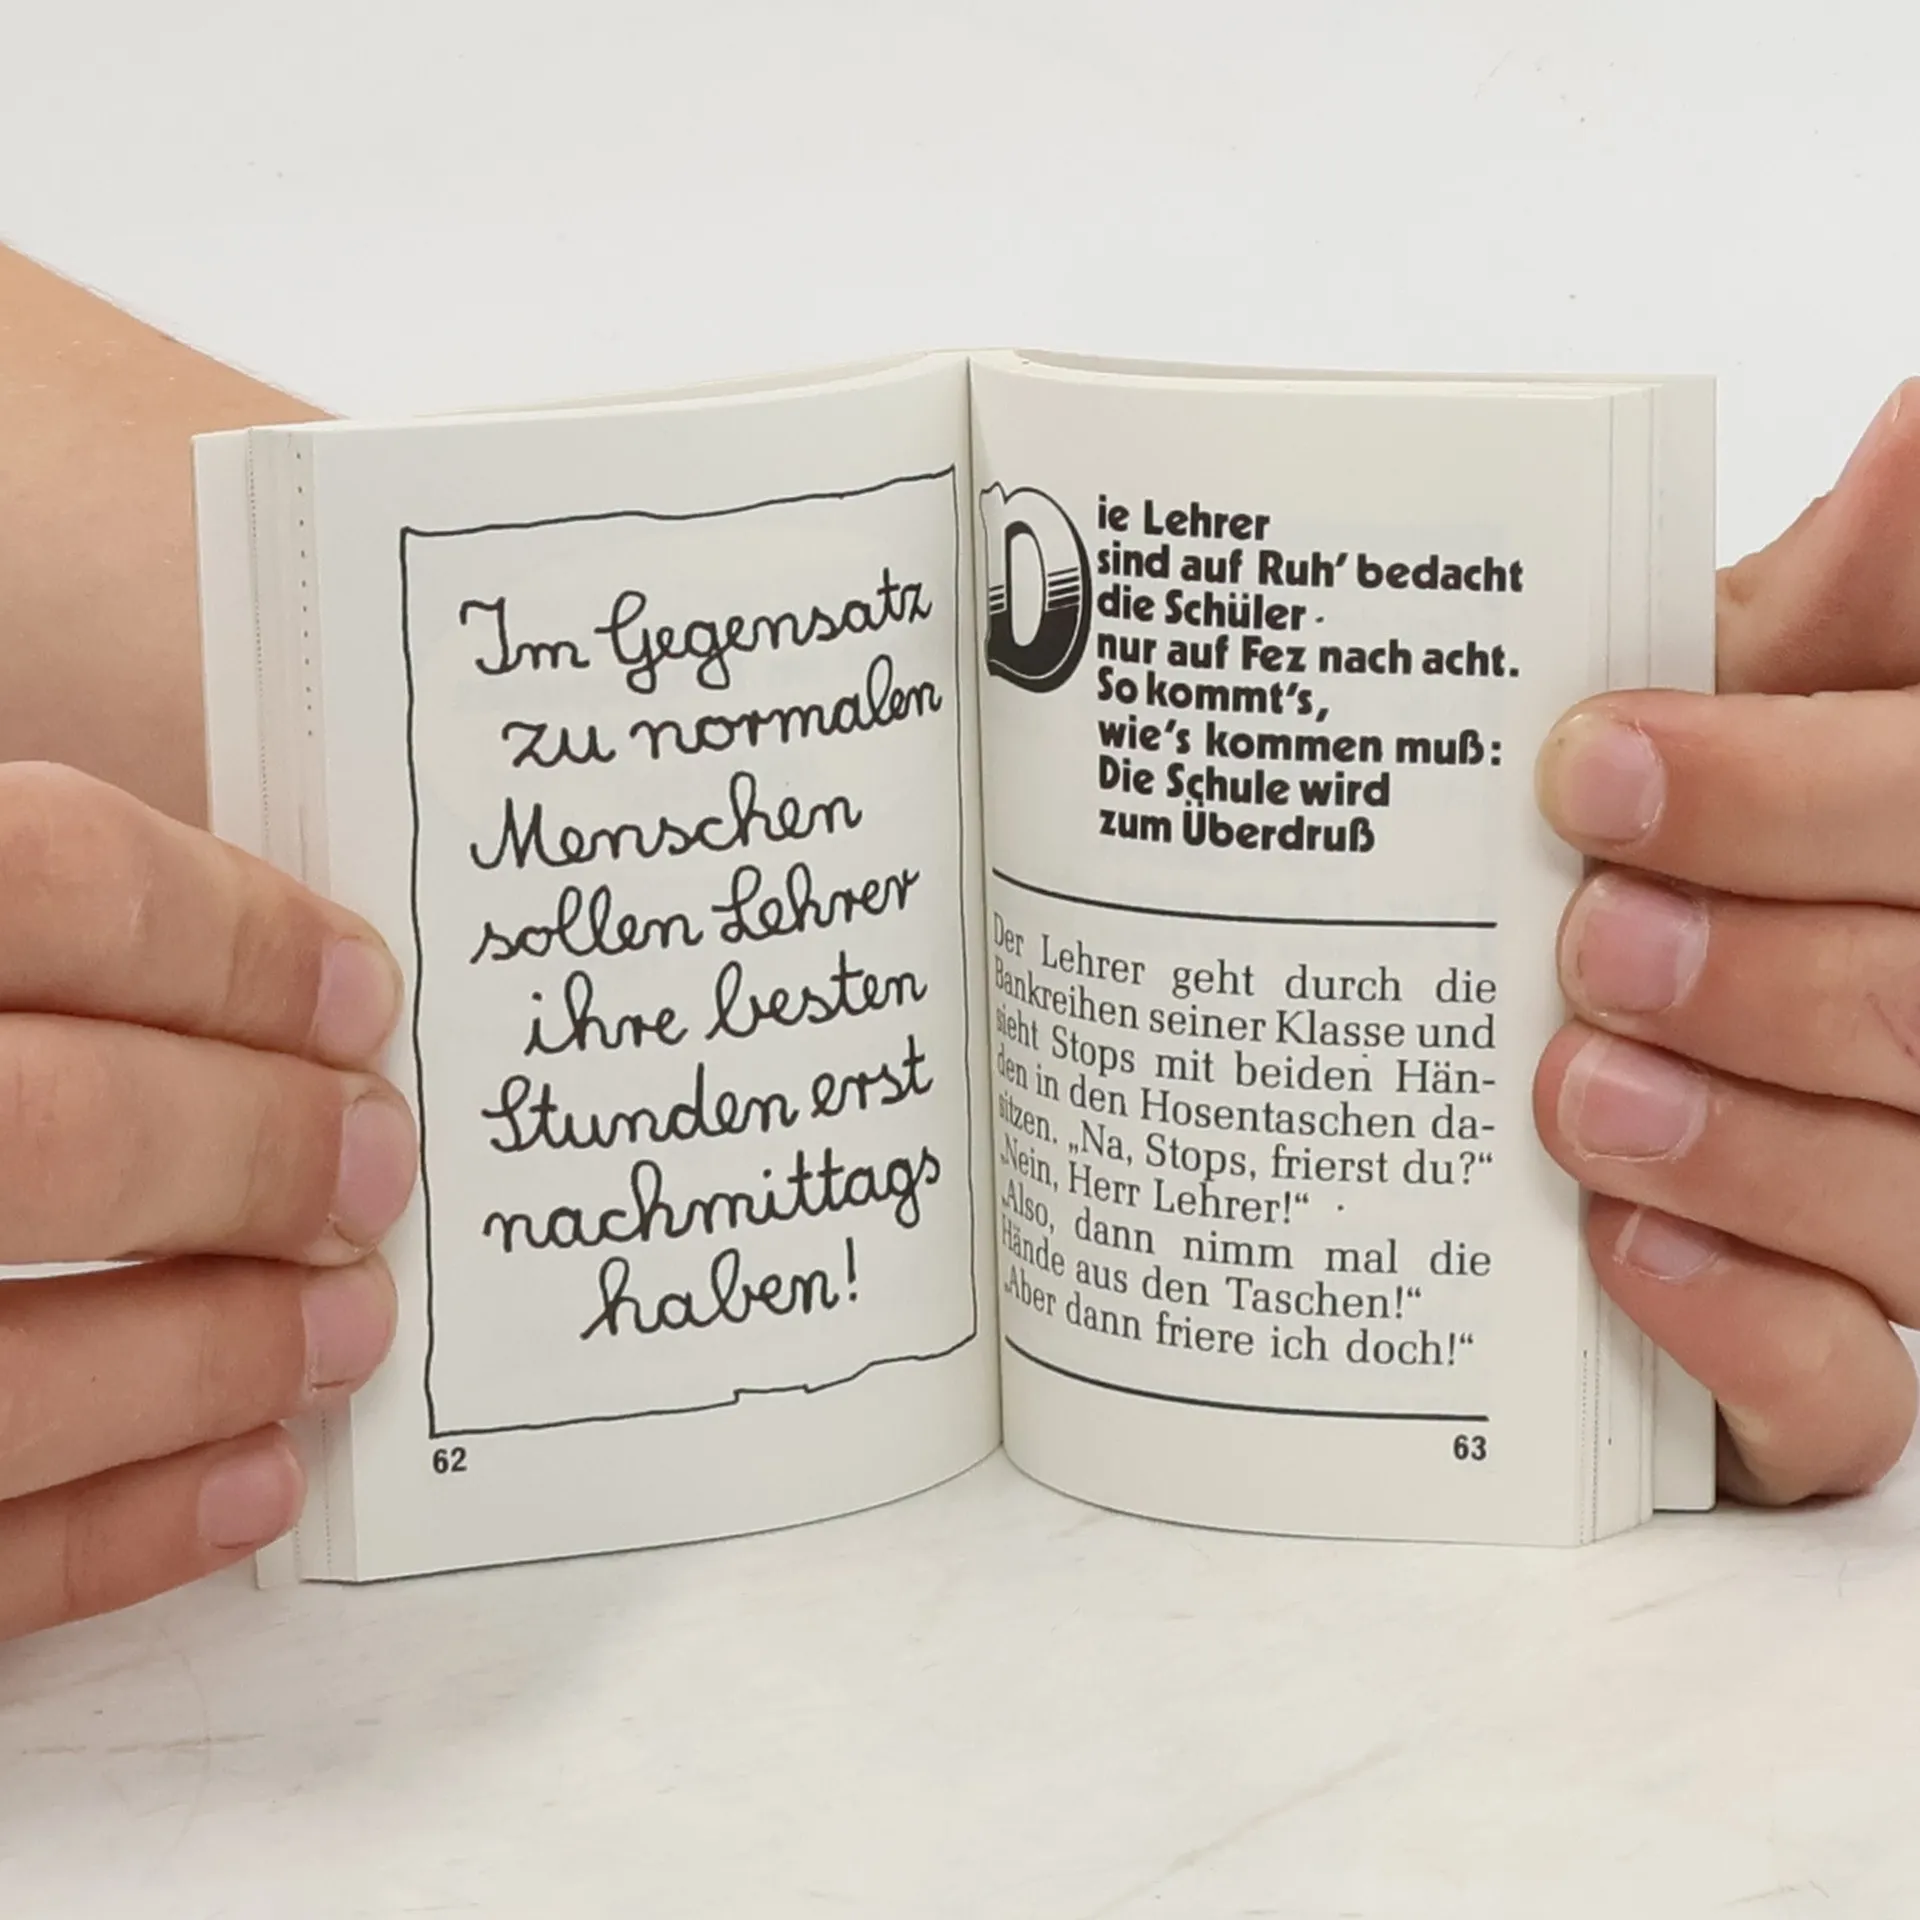 Im Gegensatz
zu normalen
Menschen
sollen Lehrer
ihre besten
Stunden erst
nachmittags
haben!
62
Die Lehrer
sind auf Ruh' bedacht
die Schüler -
nur auf Fez nach acht.
So kommt's,
wie's kommen muß:
Die Schule wird
zum Überdruß
Der Lehrer geht durch die
Bankreihen seiner Klasse und
sieht Stops mit beiden Hän-
den in den Hosentaschen da-
sitzen. „Na, Stops, frierst du?“
„Nein, Herr Lehrer!“
„Also, dann nimm mal die
Hände aus den Taschen!“
„Aber dann friere ich doch!“
63